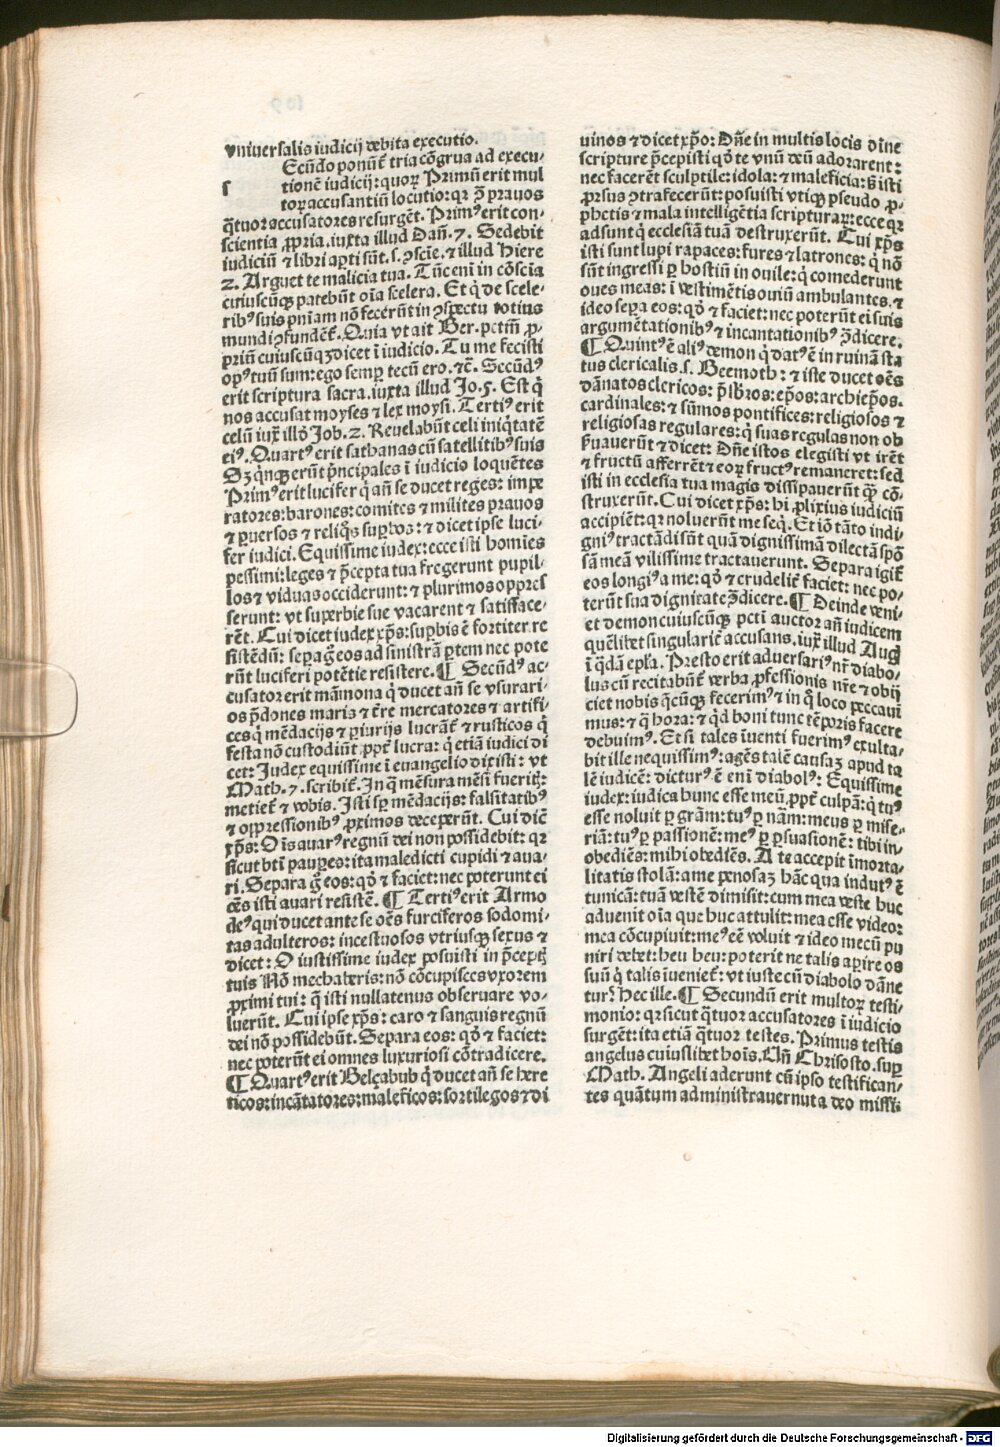 vniuersalis iudicij debita executio.
Ecūdo ponūt̄ tria cōgrua ad execu-
s
tionē iudicij: quoꝝ Primū erit mul
toꝝ accusantiū locutio: qꝛ ꝯ̄ prauos
q̄tuor accusatores resurgēt. Primꝰ erit con-
scientia ꝓpria. iuxta illud Dañ. 7. Sedebit
iudiciū ⁊ libri aꝑti sūt. s. ꝯsciē. ⁊ illud Hiere
2. Arguet te malicia tua. Tūc eni in cōscia
cuiuscūqꝫ patebūt oīa scelera. Et q̇ de scele-
ribꝰ suis pniam nō fecerūt in ꝯspectu totius
mundi ꝯfundēt̄. Quia vt ait Ber. pctm̄ ꝓ-
priū cuiuscūqꝫ dicet ī iudicio. Tu me fecisti
opꝰ tuū sum: ego semꝑ tecū ero. ⁊c̄. Secūdꝰ
erit scriptura sacra. iuxta illud Jo. 5. Est q̇
nos accusat moyses ⁊ lex moysi. Tertiꝰ erit
celū iux̄ illd̓ Job. 2. Reuelabūt celi iniq̇tatē
eiꝰ. Quartꝰ erit sathanas cū satellitibꝰ suis
Sꝫ q̇nqꝫ erūt p̄ncipales ī iudicio loquētes
Primꝰ erit lucifer q̇ añ se ducet reges: impe
ratores: barones: comites ⁊ milites prauos
⁊ ꝑuersos ⁊ reliq̇s suꝑbos: ⁊ dicet ipse luci-
fer iudici. Equissime iudex: ecce isti homīes
pessimi: leges ⁊ p̄cepta tua fregerunt pupil-
los ⁊ viduas occiderunt: ⁊ plurimos oppres
serunt: vt superbie sue vacarent ⁊ satisface-
rēt. Cui dicet iudex xp̄s: suꝑbis ē fortiter re
sistēdū: seꝑa g̊ eos ad sinistrā ꝑtem nec pote
rūt luciferi potētie resistere. ¶ Secūdꝰ ac-
cusator erit māmona q̇ ducet añ se vsurari-
os p̄dones maris ⁊ t̄re mercatores ⁊ artifi-
ces q̇ mēdacijs ⁊ ꝑiurijs lucrāt̄ ⁊ rusticos q̇
festa nō custodiūt ꝓpt̄ lucra: q̇ etiā iudici di
cet: Judex equissime ī euangelio dixisti: vt
Math. 7. scribit̄. In q̄ mēsura mēsi fueritis:
metiet̄ ⁊ vobis. Isti suꝑ mēdacijs: falsitatibꝰ
⁊ oppressionibꝰ ꝓximos deceperūt. Cui dic̄
xp̄s: Oīs auarꝰ regnū dei non possidebit: qꝛ
sicut bt̄i pauꝑes: ita maledicti cupidi ⁊ aua-
ri. Separa g̊ eos: qd̓ ⁊ faciet: nec poterunt ei
oēs isti auari resistē. ¶ Tertiꝰ erit Armo
deꝰ qui ducet ante se oēs furciferos sodomi-
tas adulteros: incestuosos vtriusqꝫ sexus ⁊
dicet: O iustissime iudex posuisti in p̄ceptis
tuis Nō mechaberis: nō cōcupisces vxorem
ꝓximi tui: q̄ isti nullatenus obseruare vo-
luerūt. Cui ipse xp̄s: caro ⁊ sanguis regnū
dei nō possidebūt. Separa eos: qd̓ ⁊ faciet:
nec poterūt ei omnes luxuriosi cōtradicere.
¶ Quartꝰ erit Belçabub q̇ ducet añ se here
ticos: incātatores: maleficos: sortilegos ⁊ di
uinos ⁊ dicet xp̄o: Dñe in multis locis diuīe
scripture p̄cepisti qd̓ te vnū deū adorarent:
nec facerēt sculptile: idola: ⁊ maleficia: ß isti
ꝓrsus ꝯtrafecerūt: posuisti vtiqꝫ pseudo ꝓ-
phetis ⁊ mala intelligētia scripturaꝝ: ecce qꝛ
adsunt q̇ ecclesiā tuā destruxerūt. Cui xp̄s
isti sunt lupi rapaces: fures ⁊ latrones: q̇ nō
sūt ingressi ꝑ hostiū in ouile: q̇ comederunt
oues meas: ī vestimētis ouiū ambulantes. ⁊
ideo seꝑa eos: qd̓ ⁊ faciet: nec poterūt ei suis
argumētationibꝰ ⁊ incantationibꝰ ꝯ̄dicere.
¶ Quintꝰ ē aliꝰ demon q̇ datꝰ ē in ruinā sta
tus clericalis. s. Beemoth: ⁊ iste ducet oēs
dānatos clericos: p̄sb̄ros: ep̄os: archiep̄os.
cardinales: ⁊ sūmos pontifices: religiosos ⁊
religiosas regulares: q̇ suas regulas non ob
ẜuauerūt ⁊ dicet: Dñe istos elegisti vt irēt
⁊ fructū afferrēt ⁊ eoꝝ fructꝰ remaneret: sed
isti in ecclesia tua magis dissipauerūt qꝫ̄ cō-
struxerūt. Cui dicet xp̄s: hi ꝓlixius iudiciū
accipiēt: qꝛ noluerūt me seq̇. Et iō tāto indi-
gniꝰ tractādi sūt quā dignissimā dilectā spō
sā meā vilissime tractauerunt. Separa igit̄
eos longiꝰ a me: qd̓ ⁊ crudelit̄ faciet: nec po-
terūt sua dignitate ꝯ̄dicere. ¶ Deinde veni-
et demon cuiuscūqꝫ pcti auctor añ iudicem
quēlibet singularit̄ accusans. iux̄ illud Aug̓
ī q̄dā epl̄a. Presto erit aduersariꝰ nr̄ diabo-
lus cū recitabūt̄ verba ꝓfessionis nr̄e ⁊ obij
ciet nobis q̄cūqꝫ fecerimꝰ ⁊ in q̇ loco peccaui
mus: ⁊ q̄ hora: ⁊ qd̓ boni tunc tēporis facere
debuimꝰ. Et si tales īuenti fuerimꝰ exulta-
bit ille nequissimꝰ: agēs talē causaꝫ apud ta
lē iudicē: dicturꝰ ē eni diabolꝰ: Equissime
iudex: iudica hunc esse meū ꝓpt̄ culpā: q̇ tuꝰ
esse noluit ꝑ grām: tuꝰ ꝑ nām: meus ꝑ mise-
riā: tuꝰ ꝑ passionē: meꝰ ꝑ ꝑsuasionē: tibi in-
obediēs: mihi obediēs. A te accepit īmorta-
litatis stolā: a me penosaꝫ hāc qua indutꝰ ē
tunicā: tuā vestē dimisit: cum mea veste huc
aduenit oīa que huc attulit: mea esse video:
mea cōcupiuit: meꝰ eē voluit ⁊ ideo mecū pu
niri debet: heu heu: poterit ne talis aꝑire os
suū q̇ talis īueniet̄: vt iuste cū diabolo dāne
tur? Hec ille. ¶ Secundū erit multoꝝ testi-
monio: qꝛ sicut q̄tuor accusatores ī iudicio
surgēt: ita etiā q̄tuor testes. Primus testis
angelus cuiuslibet hoīs. Uñ Chrisosto. suꝑ
Math. Angeli aderunt cū ipso testifican-
tes quātum administrauerunt a deo missi:
Digitalisierung gefördert durch die Deutsche Forschungsgemeinschaft - DFG